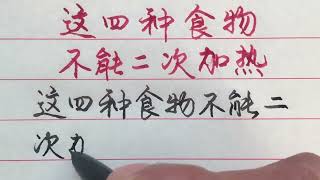 这四种食物
不能二次加热
这四种食物不能二
次